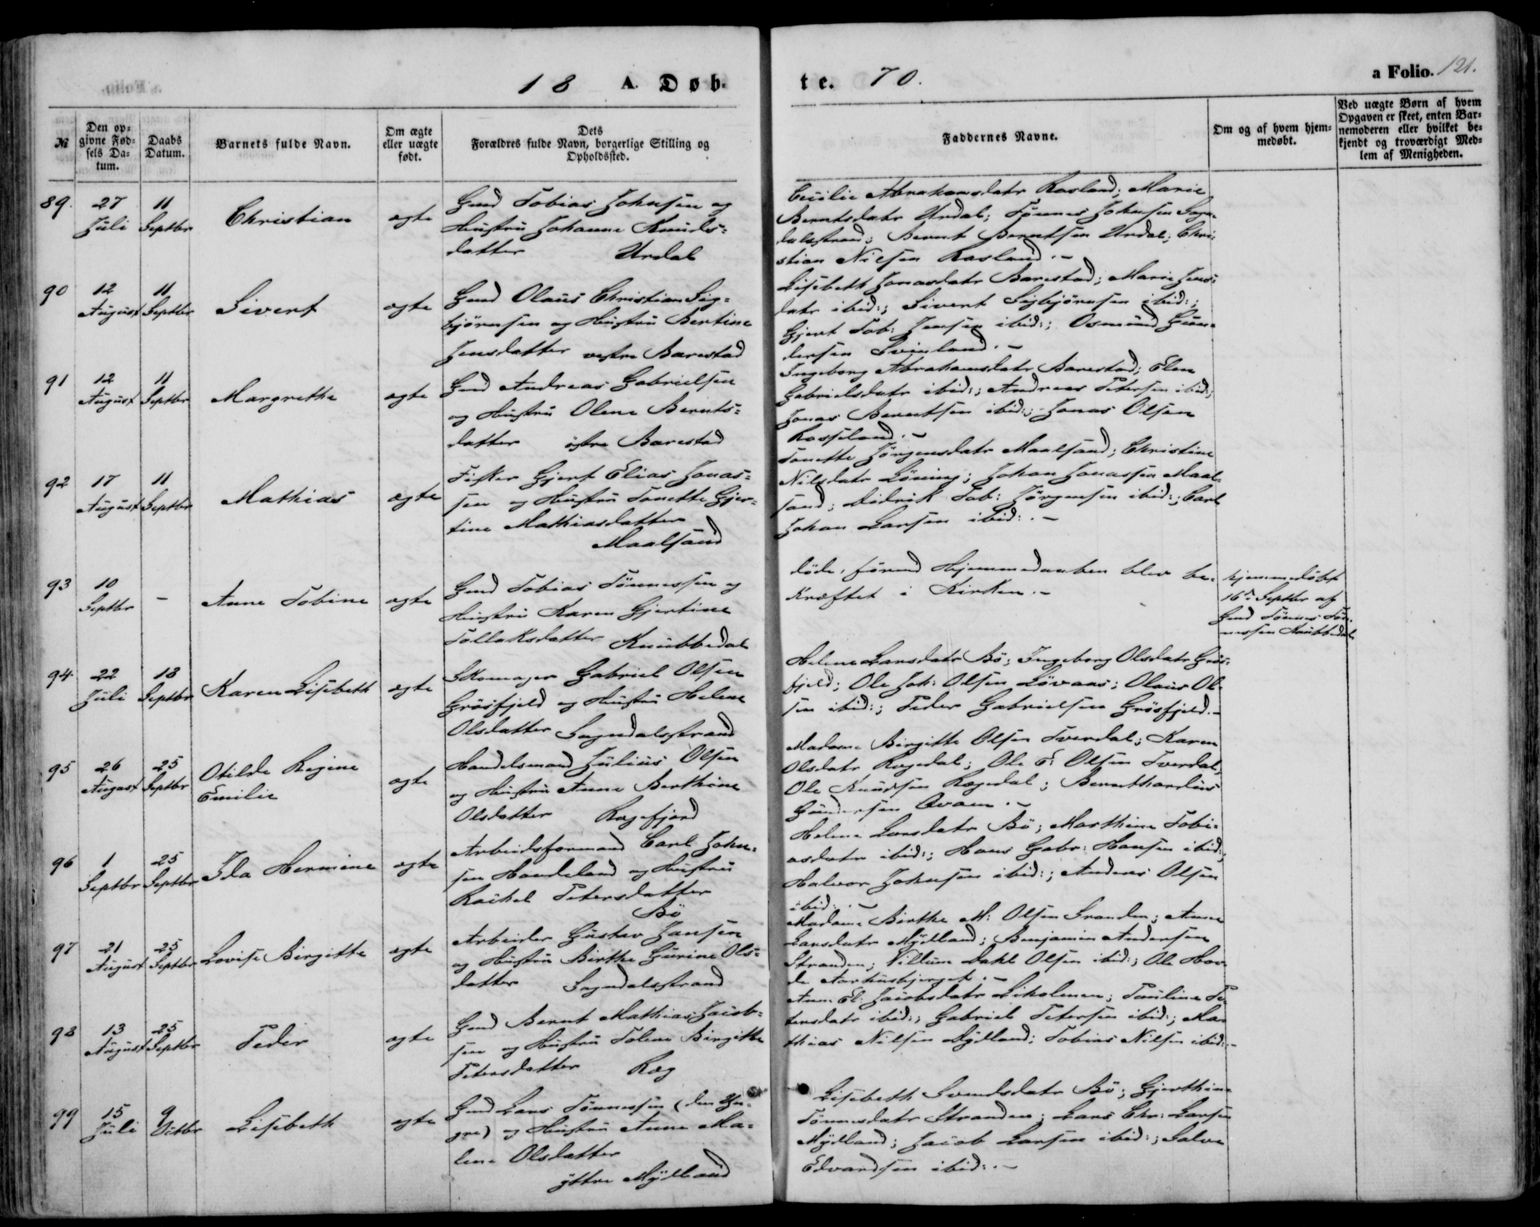 18 A. Døb-
te. 70.
a Folio. 121.
№
Den op-
givne Fød-
sels Da-
tum.
Daabs
Datum.
Barnets fulde Navn.
Om ægte
eller uægte
født.
Dets
Forældres fulde Navn, borgerlige Stilling og
Opholdssted.
Faddernes Navne.
Om og af hvem hjem-
medøbt.
Ved uægte Børn af hvem
Opgaven er skeet, enten Bar-
nemoderen eller hvilket be-
kjendt og troværdigt Med-
lem af Menigheden.
89.
27
Juli
11
Septbr
Christian
ægte
Gmd Tobias Johnsen og
Hustru Johanne Knuds-
datter Urdal
Cecilie Abrahamsdatr Rosland; Marie
Berntsdatr Urdal; Tønnes Johnsen Sogn-
dalsstrand; Bernt Berntsen Urdal; Chri-
stian Nielsen Rosland.-
90
12
August
11
Septbr
Sivert
ægte
Gmd Olaus Christian Sig-
bjørnsen og Hustru Bertine
Jensdatter vestre Barestad
Lisebeth Jonasdatr Barestad; Marie Jens-
datr ibid:; Sivert Sigbjørnsen ibid:;
Gjert Tob: Jensen ibid:; Osmund Gun-
dersen Svinland.-
91
12
August
11
Septbr
Margrethe
ægte
Gmd Andreas Gabrielsen
og Hustru Olene Bernts-
datter østre Barestad
Ingeborg Abrahamsdatr Barestad; Elen
Gabrielsdatr ibid:; Andreas Petersen ibid:;
Jonas Berentsen ibid:; Jonas Olsen
Rosseland.-
92
17
August
11
Septbr
Mathias
ægte
Fisker Gjert Elias Jonas-
sen og Hustru Tonette Gjer-
tine Mathiasdatter
Maalsand
Tonette Jørgensdatr Maalsand; Christine
Nilsdatr Løning; Johan Jonassen Maal-
sand; Didrik Tob: Jørgensen ibid:; Carl
Johan Larsen ibid:.-
93
10
Septbr
-
Anne Tobine
ægte
Gmd Tobias Tønnessen og
Hustru Karen Gjertine
Tollaksdatter Knubbedal
døde, førend Hjemmedaaben blev be-
kræftet i Kirken.-
hjemmedøbt
16de Septbr af
Gmd Tønnes Tøn-
nessen Knubbedal
94
22
Juli
18
Septbr
Karen Lisebeth
ægte
Skomager Gabriel Olsen
Grøsfjeld og Hustru Helene
Olsdatter Sogndalsstrand
Helene Larsdatr Bø; Ingeborg Olsdatr Grøs-
fjeld; Ole Joh: Olsen Løvaas; Olaus Ol-
sen ibid:; Peder Gabrielsen Grøsfjeld.-
95
26
August
25
Septbr
Otilde Regine
Emilie
ægte
Handelsmand Julius Olsen
og Hustru Anne Berthine
Olsdatter Rægefjord
Madame Birgitte Olsen Tverdal; Karen
Olsdatr Rægedal; Ole E Olsen Tverdal,
Ole Knudsen Rægedal; Bernthardus
Gundersen Evaen.-
96
1
Septbr
25
Septbr
Ida Hermine
ægte
Arbeidsformand Carl John-
sen Handeland og Hustru
Rachel Petersdatter
Bø
Helene Larsdatr Bø; Marthine Tobi-
asdatr ibid:; Hans Gabr: Hansen ibid:;
Halvor Johnsen ibid:; Anders Olsen
ibid:.-
97
21
August
25
Septbr
Lovise Birgitte
ægte
Arbeider Gustav Jansen
og Hustru Birthe Gurine Ols-
datter Sogndalsstrand
Madame Birthe M: Olsen Stranden; Anne
Larsdatr Mydland; Benjamin Andersen
Stranden; Villum Dahl Olsen ibid:; Ole
98
13
August
25
Septbr
Peder
ægte
Gmd Bernt Mathias Jacob-
sen og Hustru Tolene Birgitte
Petersdatter Ræg
Anne El. Jacobsdatr; Pauline Pe-
tersdatr ibid:; Gabriel Petersen ibid:; Ma-
thias Nilsen Mydland; Tobias Nilsen ibid:-
99
15
Juli
9
Octbr
Lisebeth
ægte
Gmd Lars Tønnessen (den Yn-
gre) og Hustru Anne Ma-
lene Olsdatter
yttre Mydland
Lisebeth Svendsdatr Bø; Gjerthine
Tønnesdatr Stranden; Lars Chr: Larsen
Mydland; Jacob Larsen ibid:; Salve
Edvardsen ibid:.-